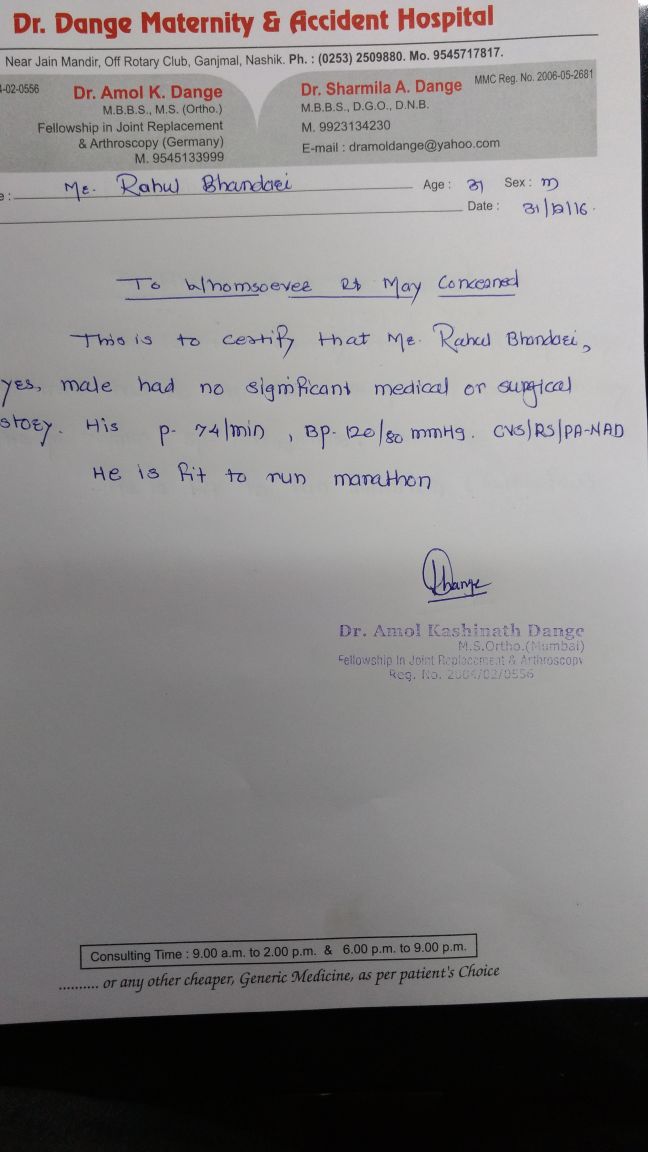 Dr. Dange Maternity & Accident Hospital
Near Jain Mandir, Off Rotary Club, Ganjmal, Nashik. Ph. : (0253) 2509880. Mo. 9545717817.
4-02-0556
Dr. Amol K. Dange
M.B.B.S., M.S. (Ortho.)
Fellowship in Joint Replacement
& Arthroscopy (Germany)
M. 9545133999
MMC Reg. No. 2006-05-2681
Dr. Sharmila A. Dange
M.B.B.S., D.G.O., D.N.B.
M. 9923134230
E-mail : dramoldange@yahoo.com
e : Mr. Rahul Bhandari Age : 31 Sex : m
Date : 31/12/16.
To Whomsoever It May Concerned
This is to certify that Mr. Rahul Bhandari,
yrs, male had no significant medical or surgical
story. His p- 74/min, BP- 120/80 mmHg. CVS/RS/PA-NAD
He is fit to run marathon
Dange
Dr. Amol Kashinath Dange
M.S.Ortho.(Mumbai)
Fellowship In Joint Replacement & Arthroscopy
Reg. No. 2004/02/0556
Consulting Time : 9.00 a.m. to 2.00 p.m. & 6.00 p.m. to 9.00 p.m.
.......... or any other cheaper, Generic Medicine, as per patient's Choice